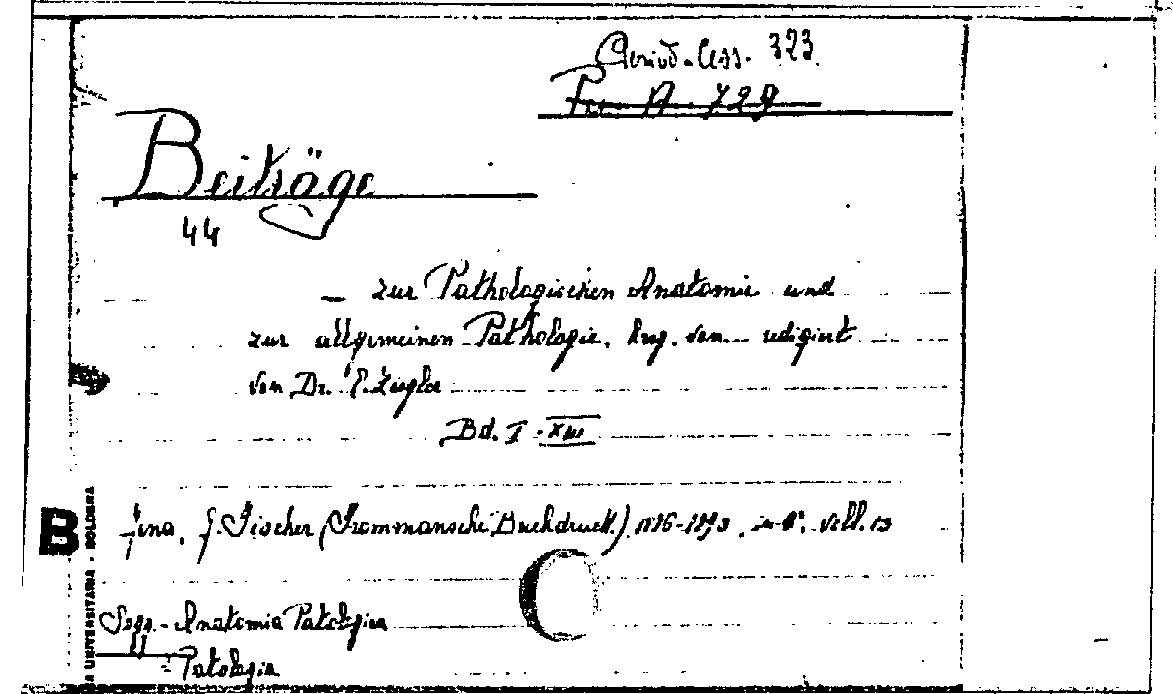 Period. Cess. 323.
A. 729
Beiträge
44
— zur Pathologischen Anatomie und
zur allgemeinen Pathologie. hrg. von... redigiert
von Dr. E. Ziegler
Bd. I - XIII
Jena, G. Fischer (Frommansche Buchdruck.) 1886-1893, in-8°. voll. 13
B
A UNIVERSITARIA - BOLOGNA
Sogg. - Anatomia Patologica
" - Patologia